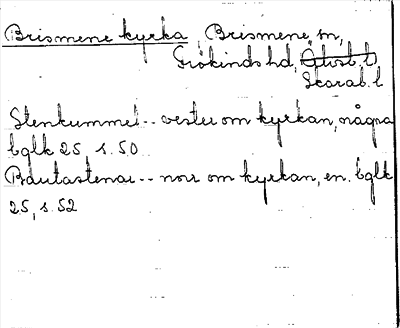 Brismene kyrka, Brismene sn,
Frökinds hd, Älvsb. l
Skarab. l
Stenkummel -- vester om kyrkan, några
bglk 25 s. 50
Bautastenar -- norr om kyrkan, en. bglk
25, s. 52